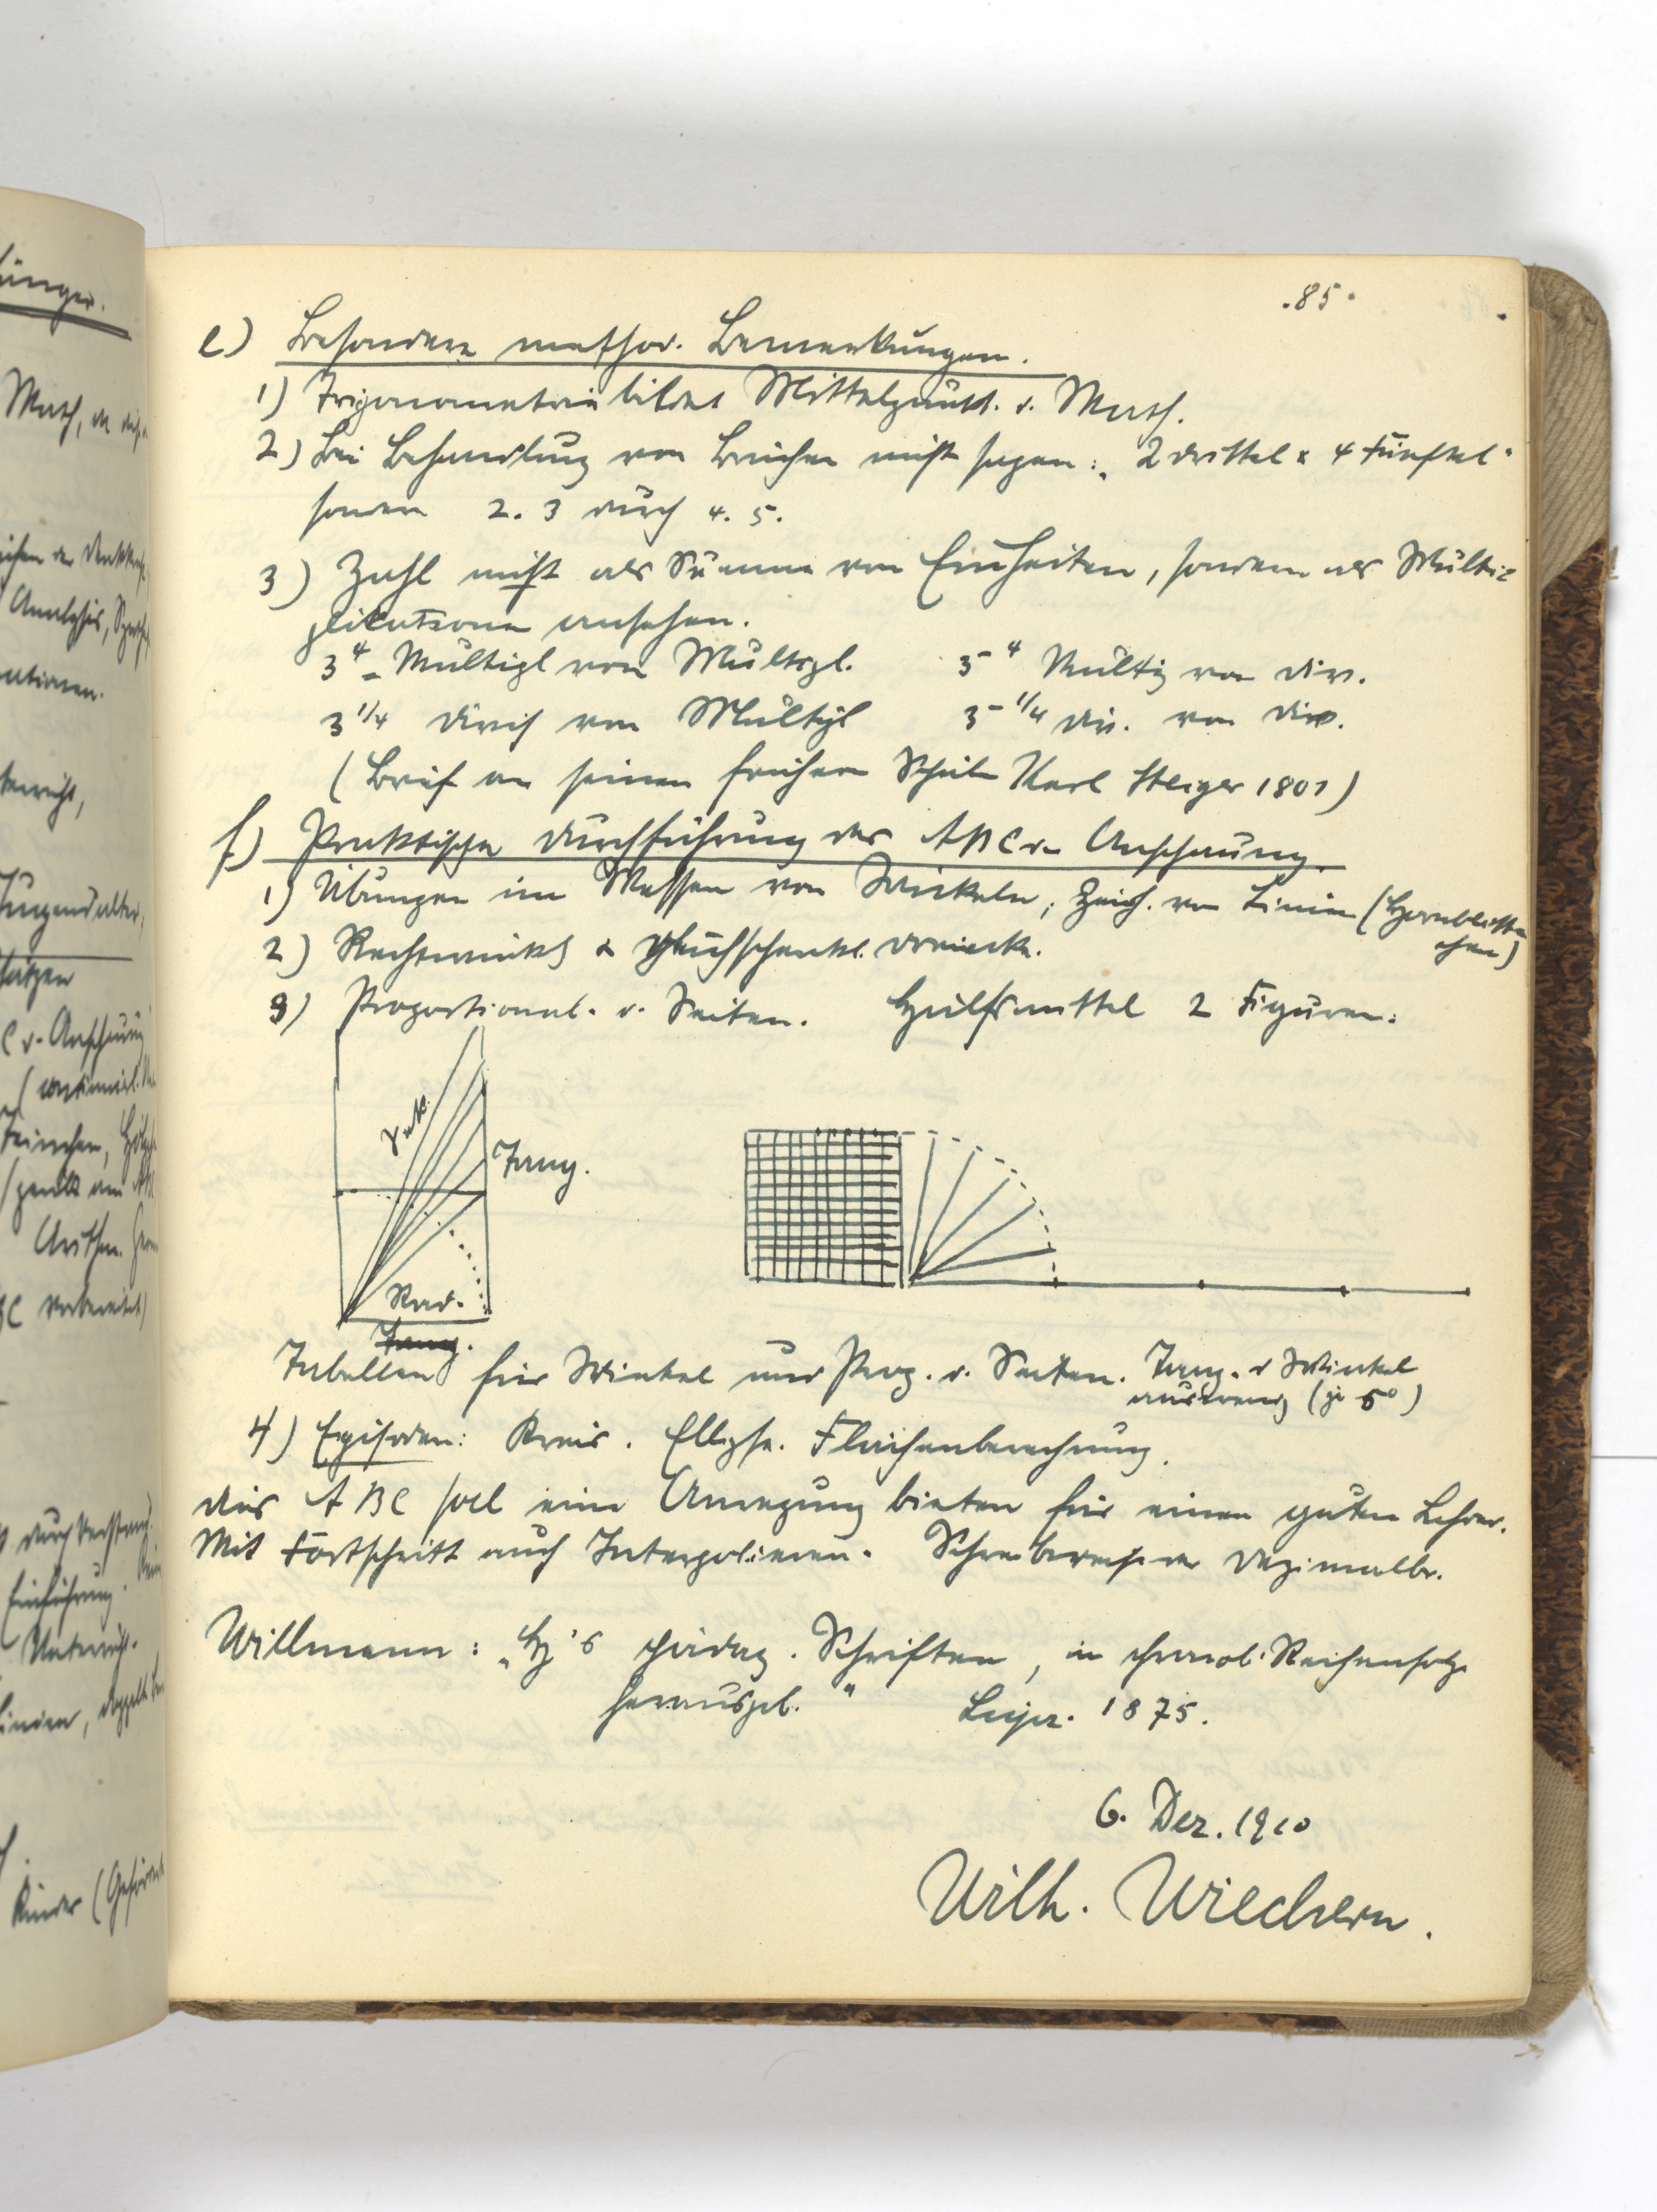 .85.
e) Besondere method. Bemerkungen.
1) Trigonometrie bildet Mittelpunkt. d. Math.
2) Bei Behandlung von Brüchen nicht sagen: „2 drittel x 4 Fünftel“
sondern 2. 3 durch 4. 5.
3) Zahl nicht als Summe von Einheiten, sondern als Multi=
plikationen ansehen.
3⁴ = Multipl von Multipl. 3⁻⁴ Multip von Div.
3^1/4 Divis von Multipl 3^-1/4 Div. von Div.
(Brief an seinen frühern Schüler Karl Steiger 1801)
f) Praktische Durchführung des ABC d. Anschauung.
1) Übungen im Messen von Winkeln, Zeich. von Linien (Hornblätt
chen)
2) Rechtwinkl & gleichschenkl. Dreiecke.
3) Proportional. d. Seiten. Hülfsmittel 2 Figuren:
Sek.
Tang.
Rad.
Tang.
Tabellen für Winkel und Prop. d. Seiten. Tang. d Winkel
auswendig (je 5°)
4) Episoden: Kreis. Ellipse. Flächenberechnung.
Das ABC soll eine Anregung bieten für einen guten Lehrer.
Mit Fortschritt auch Interpolieren. Schreibweise der Dezimalbr.
Willmann: „Hz's pädag. Schriften, in chronol. Reihenfolge
herausgeb.“ Leipz. 1875.
6. Dez. 1910
Wilh. Wiechern.